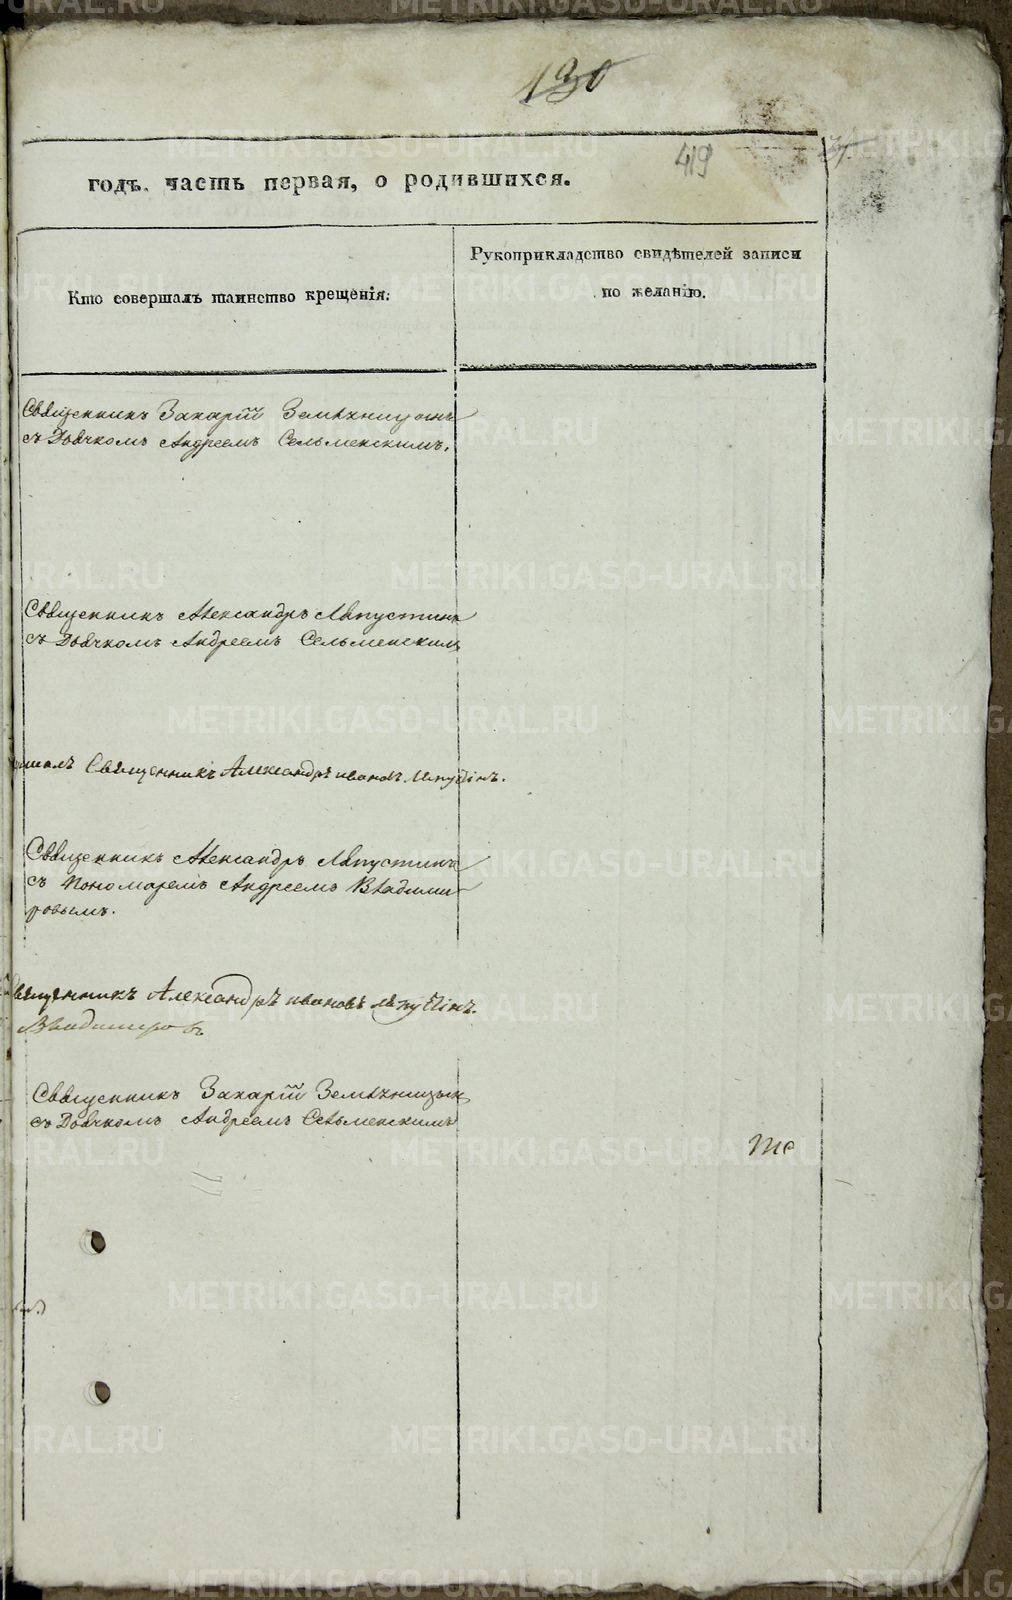 130
419
годъ. часть первая, о родившихся.
Рукоприкладство свидѣтелей записи
по желанію.
Кто совершалъ таинство крещенія.
Священникъ Захарій
съ Дьячкомъ Андреемъ Сельменскимъ.
Священникъ Александръ Ляпустинъ
съ Дьячкомъ Андреемъ Сельменскимъ
Священникъ Александръ ивановъ
Священникъ Александръ Ляпустинъ
съ Пономаремъ Андреемъ Владими-
ровымъ.
Священникъ Александръ ивановъ
Владимировъ
Священникъ Захарій
съ Дьячкомъ Андреемъ Сельменскимъ
METRIKI.GASO-URAL.RU